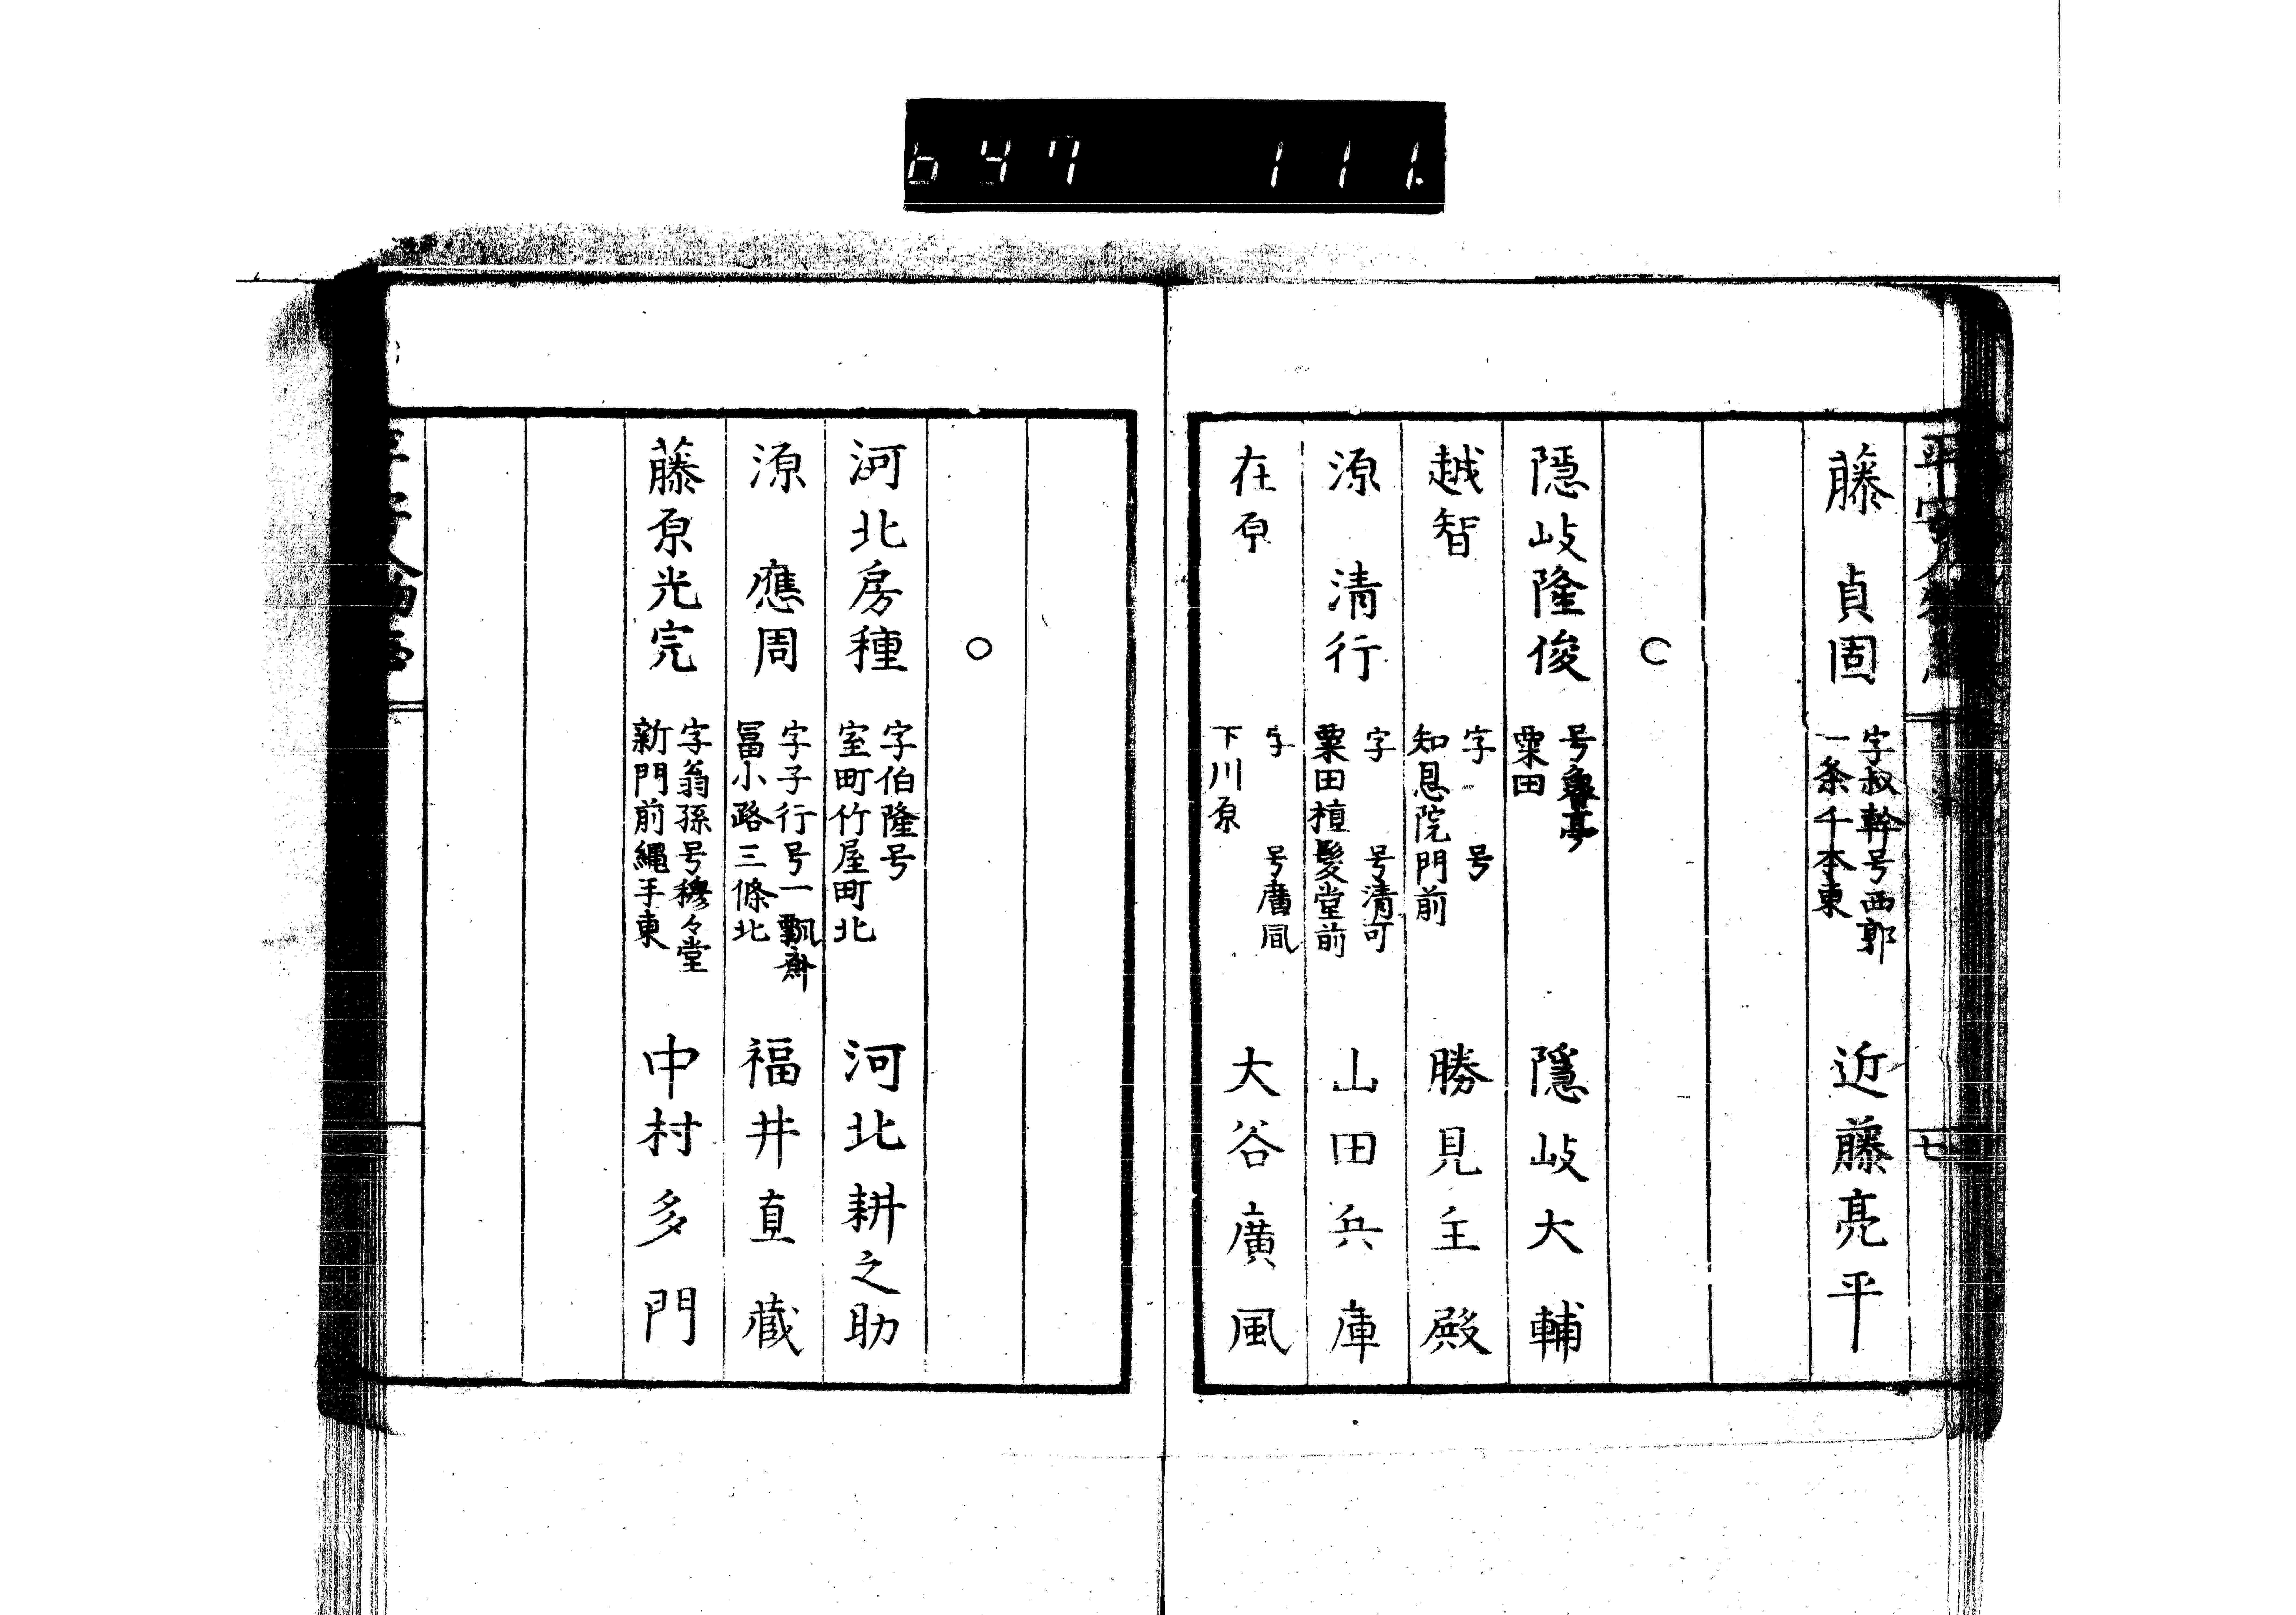 647 111.
平安人物志
七
藤 貞固 字叔幹号西郭 一条千本東 近藤亮平
○
隠岐隆俊 号魯亭 粟田 隱岐大輔
越智 字 号 知恩院門前 勝見主殿
源 清行 字 号清可 粟田植髪堂前 山田兵庫
在原 字 号廣風 下川原 大谷廣風
○
河北房種 字伯隆号 室町竹屋町北 河北耕之助
源 應周 字子行号一瓢齋 冨小路三條北 福井直蔵
藤原光完 字翁孫号穆々堂 新門前繩手東 中村多門
平安人物志